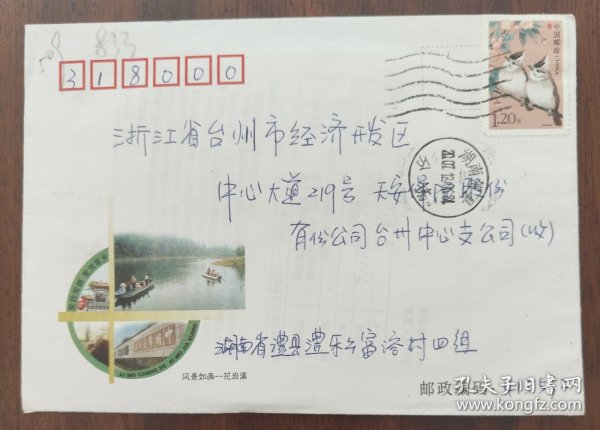 508 833
318000
中国邮政
CHINA
1.20元
浙江省台州市经济开发区
中心大道219号 天安保险股份
有份公司台州中心支公司(收)
湖南
AI WO CHANG DE
风景如画--花岩溪
湖南省澧县澧
富溶村四组
邮政编码
孔夫子旧书网
www.kongfz.com